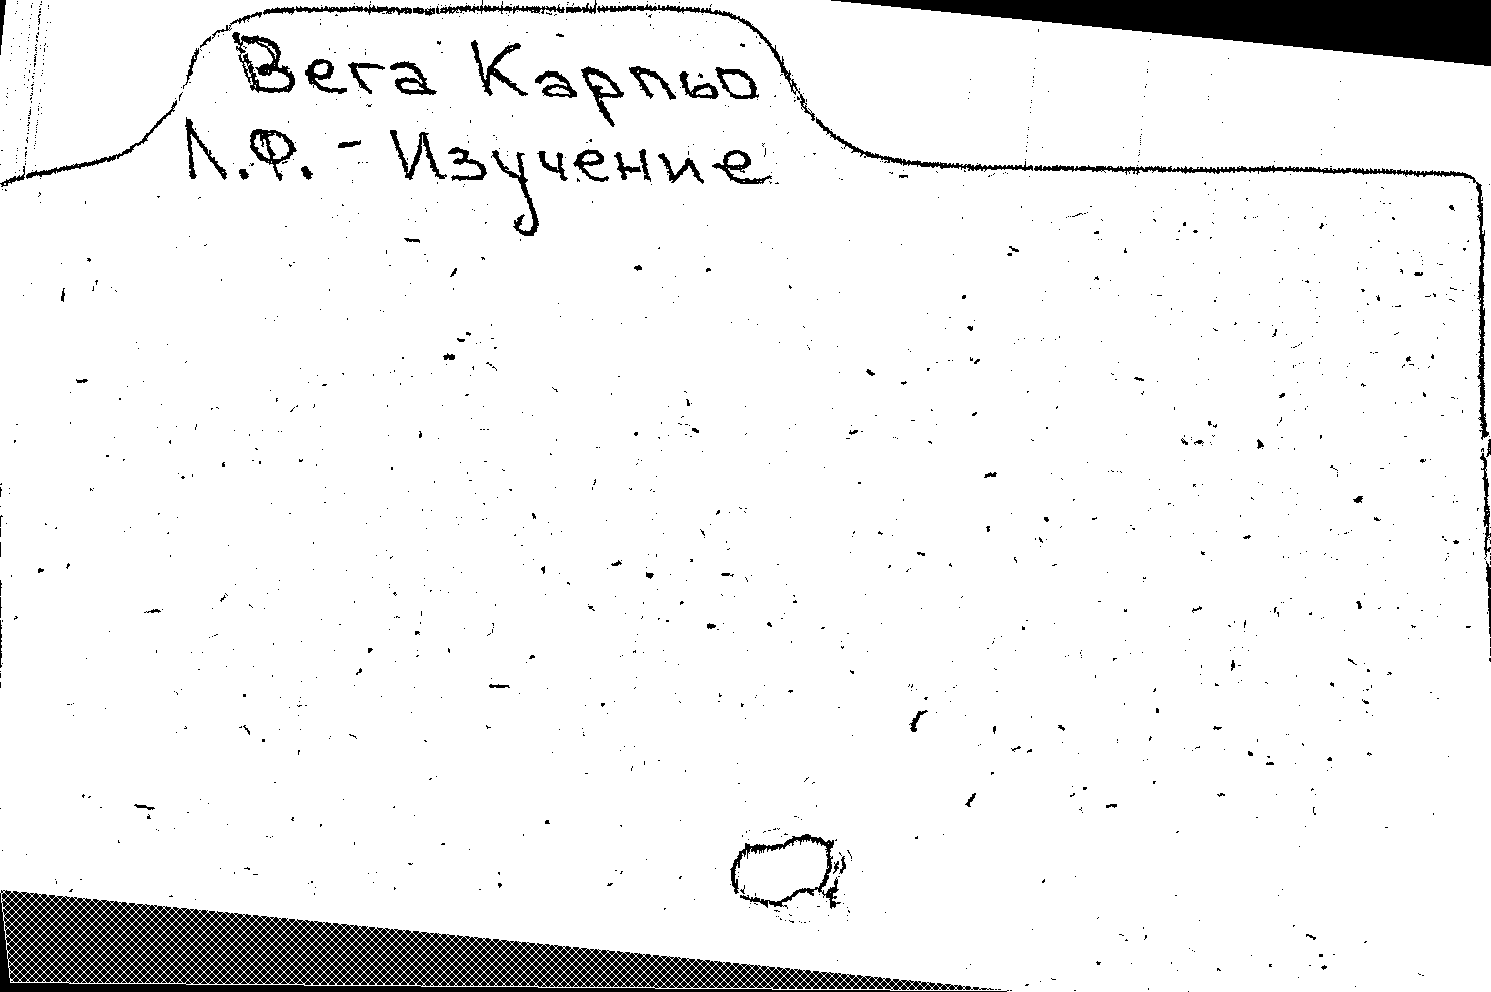 Вега Карпьо
Л.Ф. - Изучение